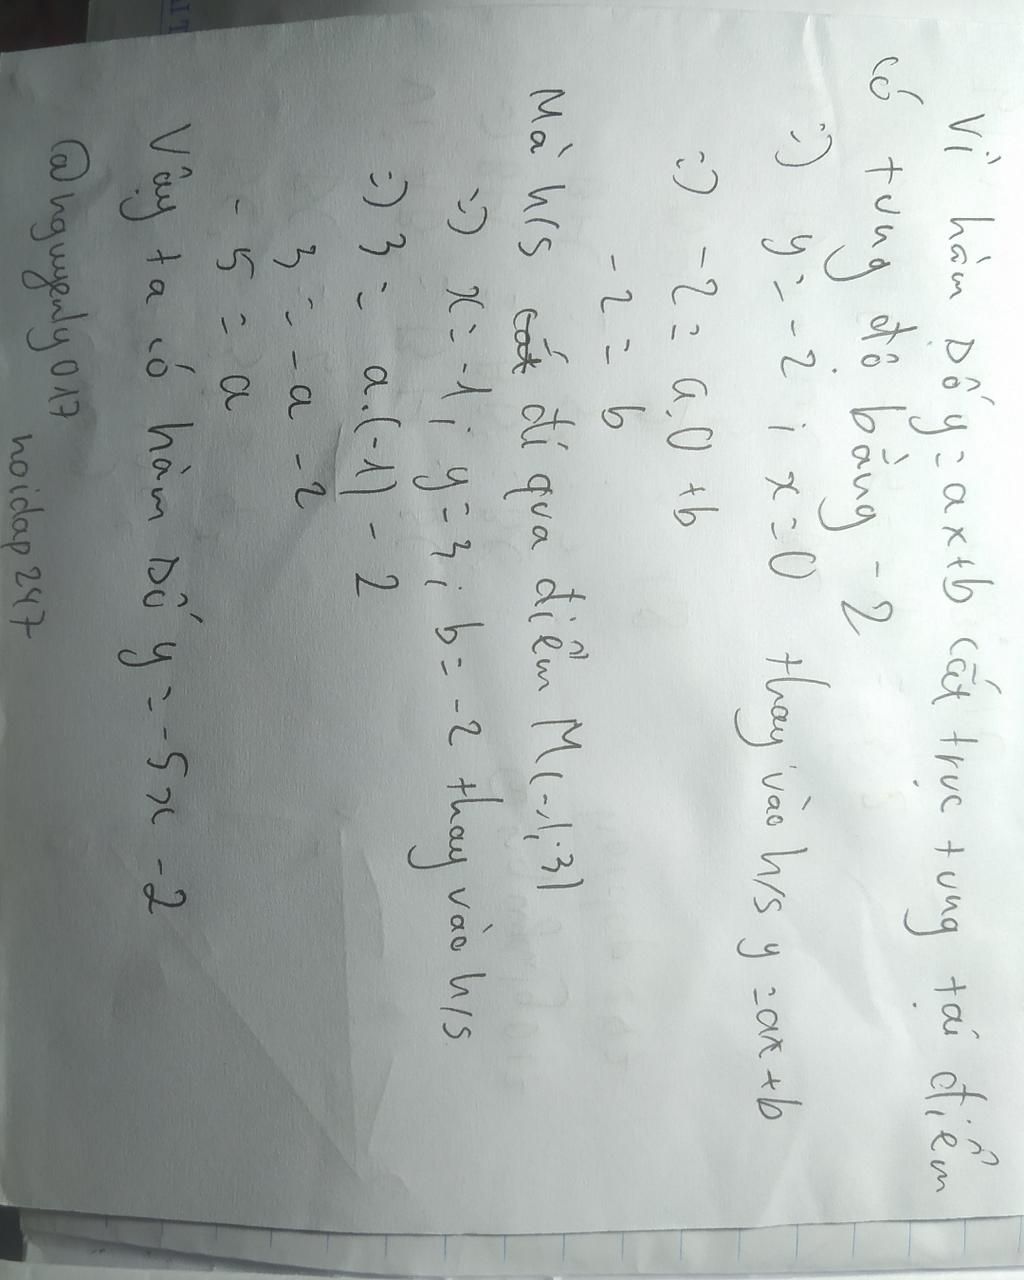 Vì hàm số y = ax + b cắt trục tung tại điểm
có tung độ bằng -2
=) y = -2 ; x = 0 thay vào h/s y = ax + b
=) -2 = a.0 + b
-2 = b
Mà h/s cắt đi qua điểm M(-1;3)
=) x = -1; y = 3; b = -2 thay vào h/s
=) 3 = a.(-1) - 2
3 = -a - 2
-5 = a
Vậy ta có hàm số y = -5x - 2
@nguyenly017
hoidap247